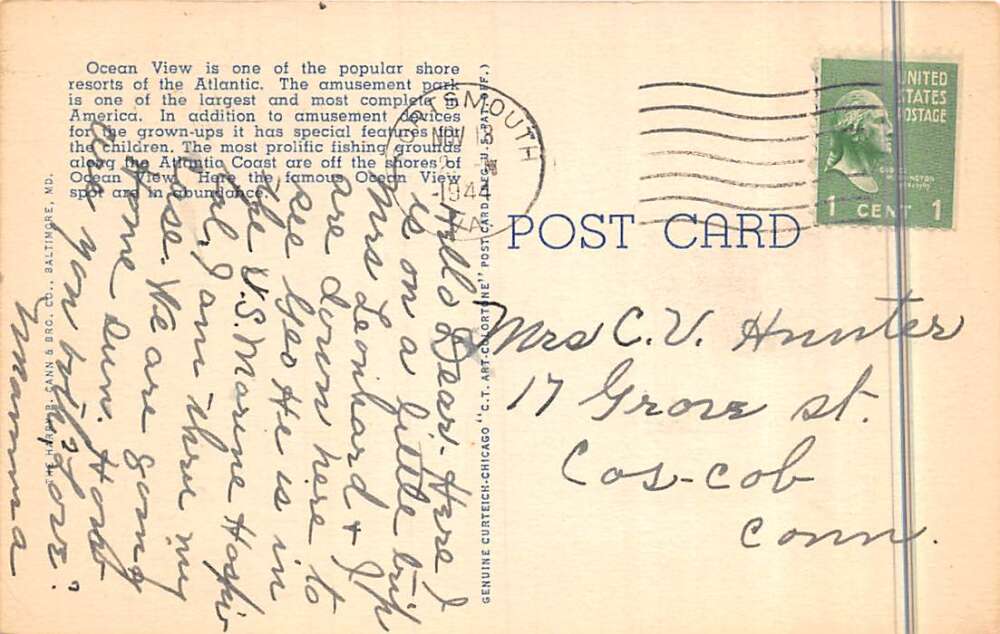 Ocean View is one of the popular shore
resorts of the Atlantic. The amusement park
is one of the largest and most complete in
America. In addition to amusement devices
for the grown-ups it has special features for
the children. The most prolific fishing grounds
along the Atlantic Coast are off the shores of
Ocean View. Here the famous Ocean View
spot are in abundance.
PORTSMOUTH
NOV 13
1944
VA.
UNITED
STATES
POSTAGE
1 CENT 1
POST CARD
Hello Dear. Here I
is on a little trip
Mrs Leonhard & I
are down here to
see Geo He is in
the U.S. Marine Hospi-
tal, I am there my
. We are going
Home Sun. How
are you both? Love.
Mamma
Mrs C. V. Hunter
17 Grove st.
Cos-cob
Conn.
THE HARRY P. CANN & BRO. CO., BALTIMORE, MD.
GENUINE CURTEICH-CHICAGO "C. T. ART-COLORTONE" POST CARD (REG. U. S. PAT. OFF.)